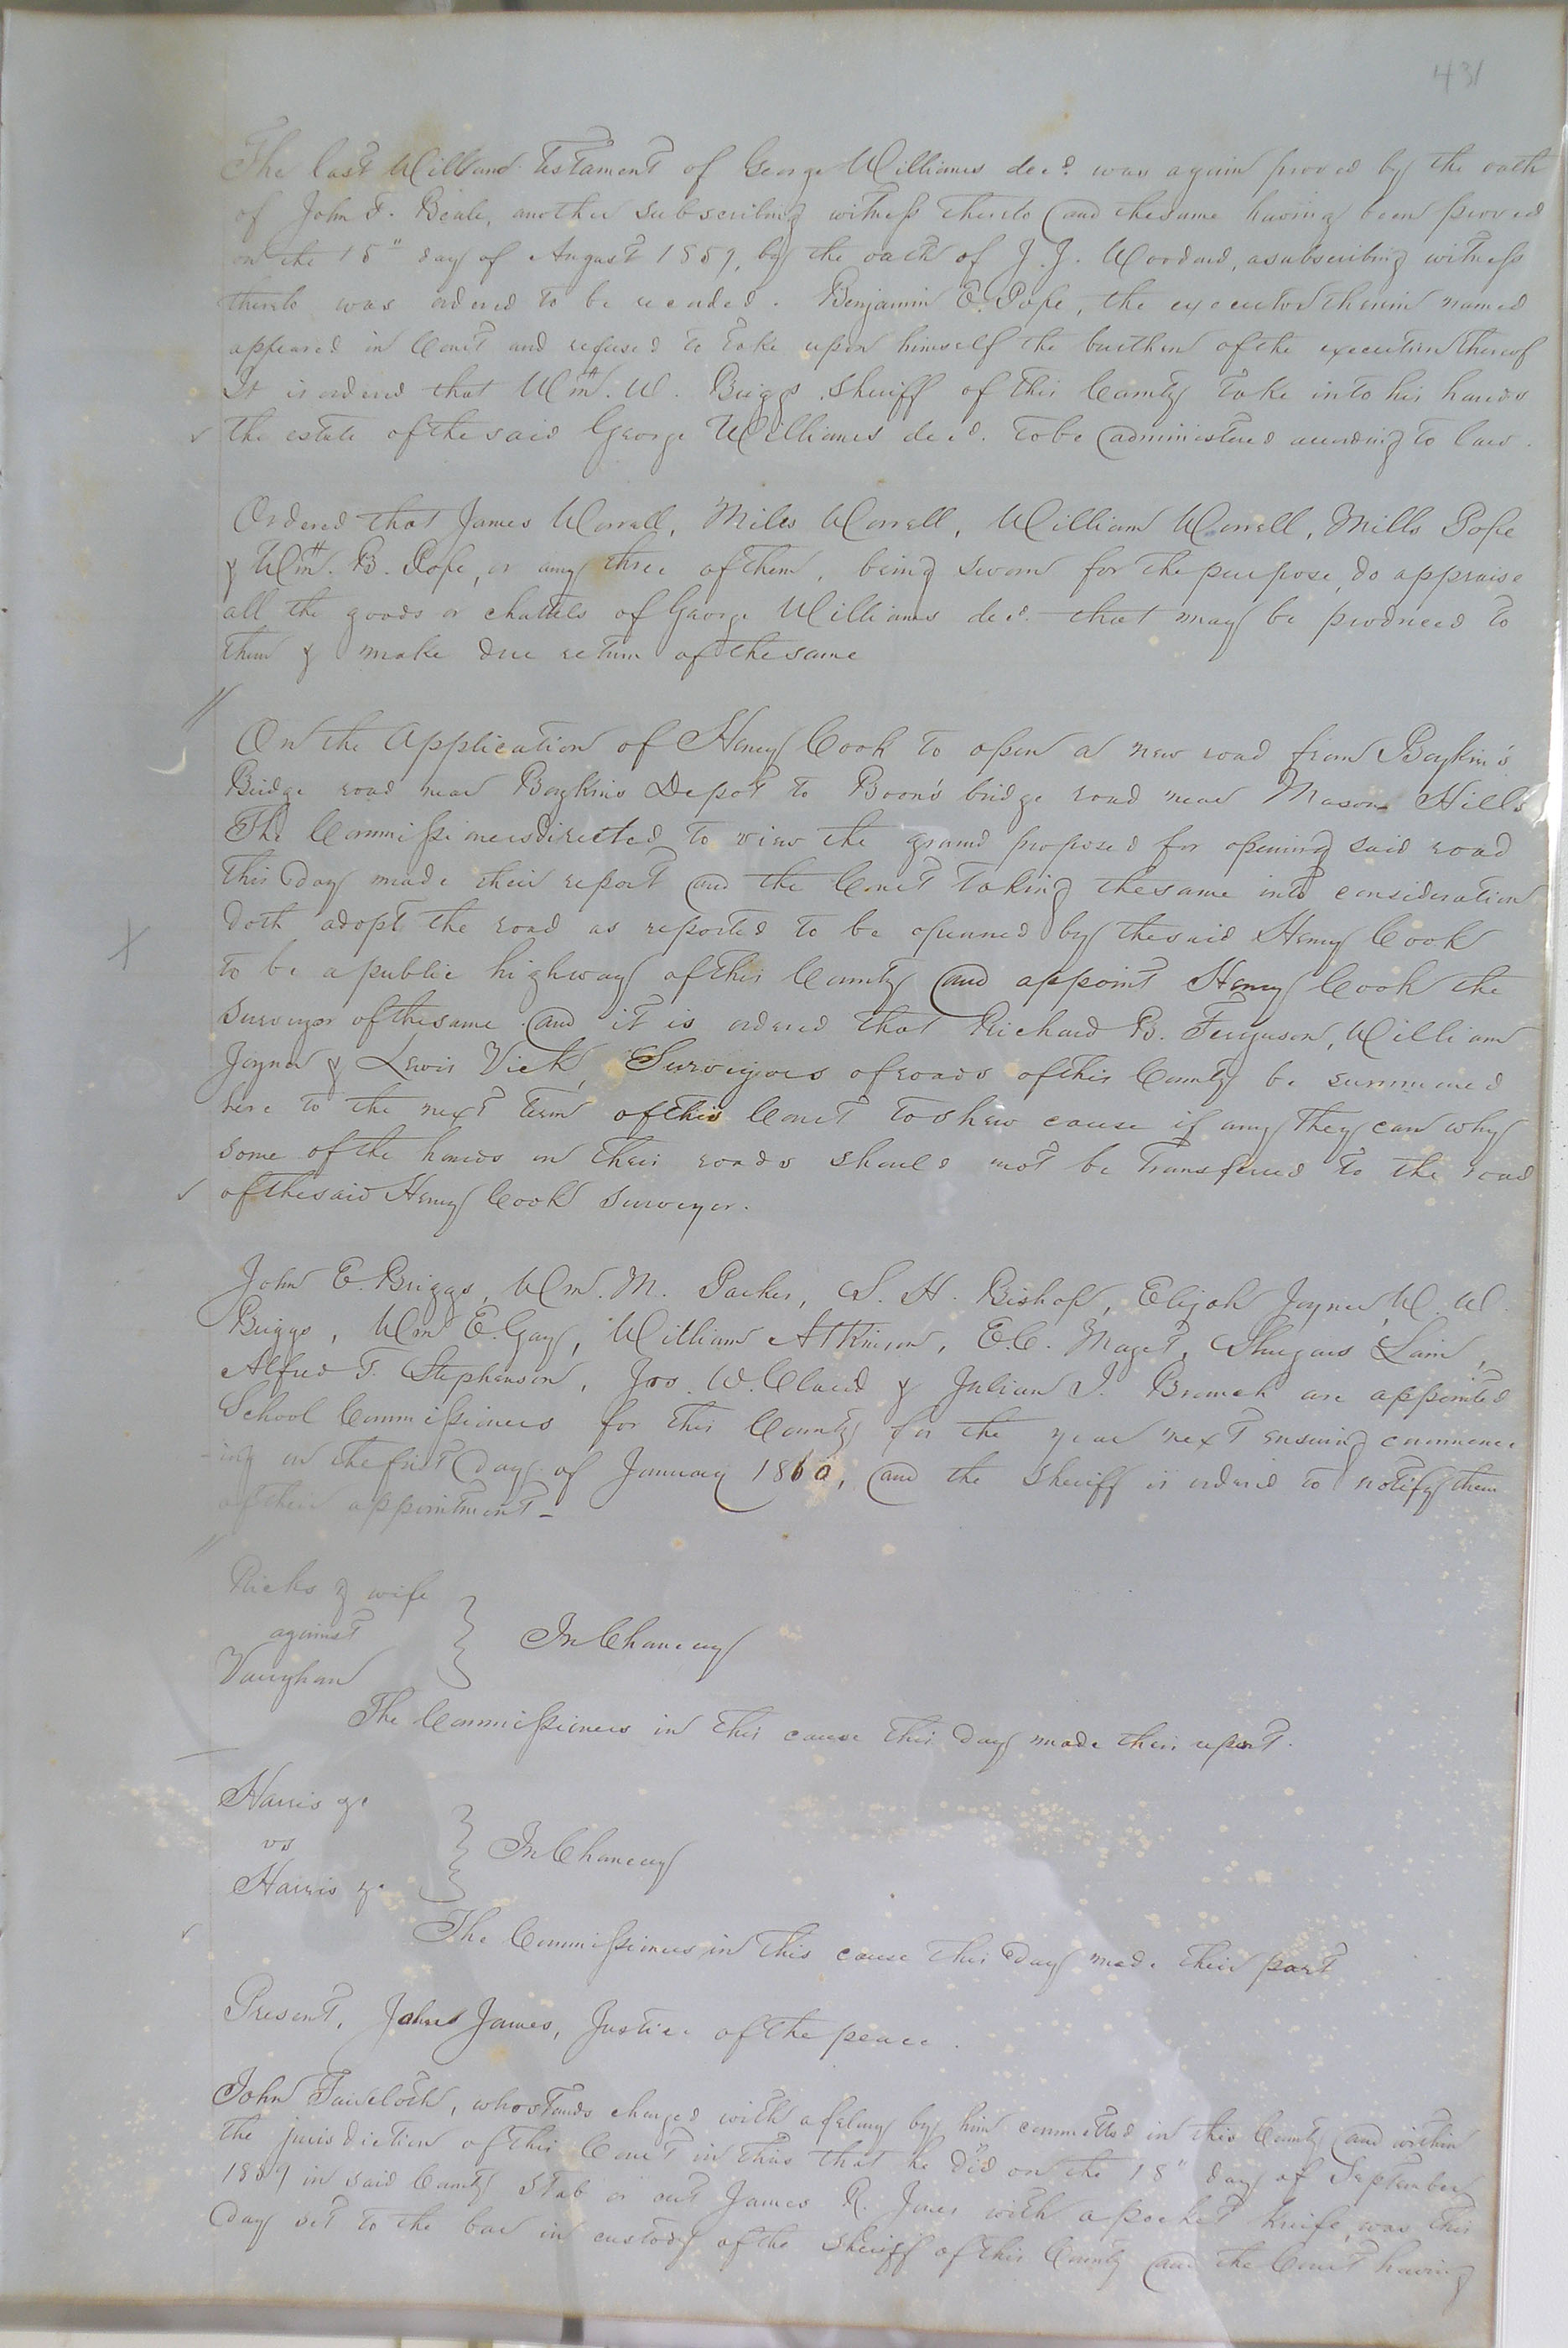 431
The last Will and Testament of George Williams decd. was again proved by the oath
of John F. Beale, another subscribing witness thereto and the same having been proved
on the 15" day of August 1859, by the oath of J. J. Woodard, a subscribing witness
thereto was ordered to be recorded. Benjamin E. Pope, the executor therein named
appeared in Court and refused to take upon himself the burthen of the execution thereof
It is ordered that Wm. W. Briggs Sheriff of this County take into his hands
the estate of the said George Williams decd. to be administered according to law.
Ordered that James Worrell, Miles Worrell, William Worrell, Mills Pope
& Wm. B. Pope, or any three of them, being sworn for the purpose, do appraise
all the goods or chattels of George Williams decd. that may be produced to
them & make due return of the same
On the Application of Henry Cook to open a new road from Boykin's
Bridge road near Boykins Depot to Boon's bridge road near Masons Hills
The Commissioners directed to view the ground proposed for opening said road
this day made their report and the Court taking the same into consideration
doth adopt the road as reported to be openned by the said Henry Cook
to be a public highway of this County and appoint Henry Cook the
surveyor of the same and it is ordered that Richard B. Ferguson, William
Joyner & Lewis Vick, Surveyors of roads of this County be summoned
here to the next term of this Court to shew cause if any they can why
some of the hands on their roads should not be transferred to the road
of the said Henry Cook surveyor.
John E. Briggs, Wm. M. Parker, S. H. Bishop, Elijah Joyner, W. W.
Briggs, Wm E. Gay, William Atkinson, E. C. Maget, Lain,
Alfred T. Stephenson, Jos. W. Claud & Julian J. Branch are appointed
School Commissioners for this County for the year next ensuing commenc
-ing on the first day of January 1860, and the Sheriff is ordered to notify them
of their appointment -
Ricks & wife
against
Vaughan
In Chancery
The Commissioners in this cause this day made their report.
Harris &c
vs
Harris &c
In Chancery
The Commissioners in this cause this day made their port
Present, John James, Justice of the peace.
John, who stands charged with a felony by him committed in this County and within
the jurisdiction of this Court in this that he did on the 18" day of September
1859 in said County stab or cut James R. Jones with a pocket knife, was this
day set to the bar in custody of the Sheriff of this County and the Court having